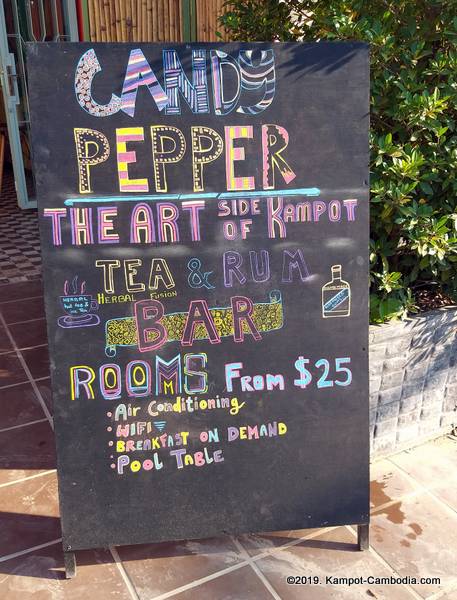 CANDY
PEPPER
THE ART SIDE OF KAMPOT
TEA & RUM
HERBAL Fusion
HERBAL
BAR
ROOMS FROM $25
Air Conditioning
WIFI
BREAKFAST ON DEMAND
POOL TABLE
©2019. Kampot-Cambodia.com